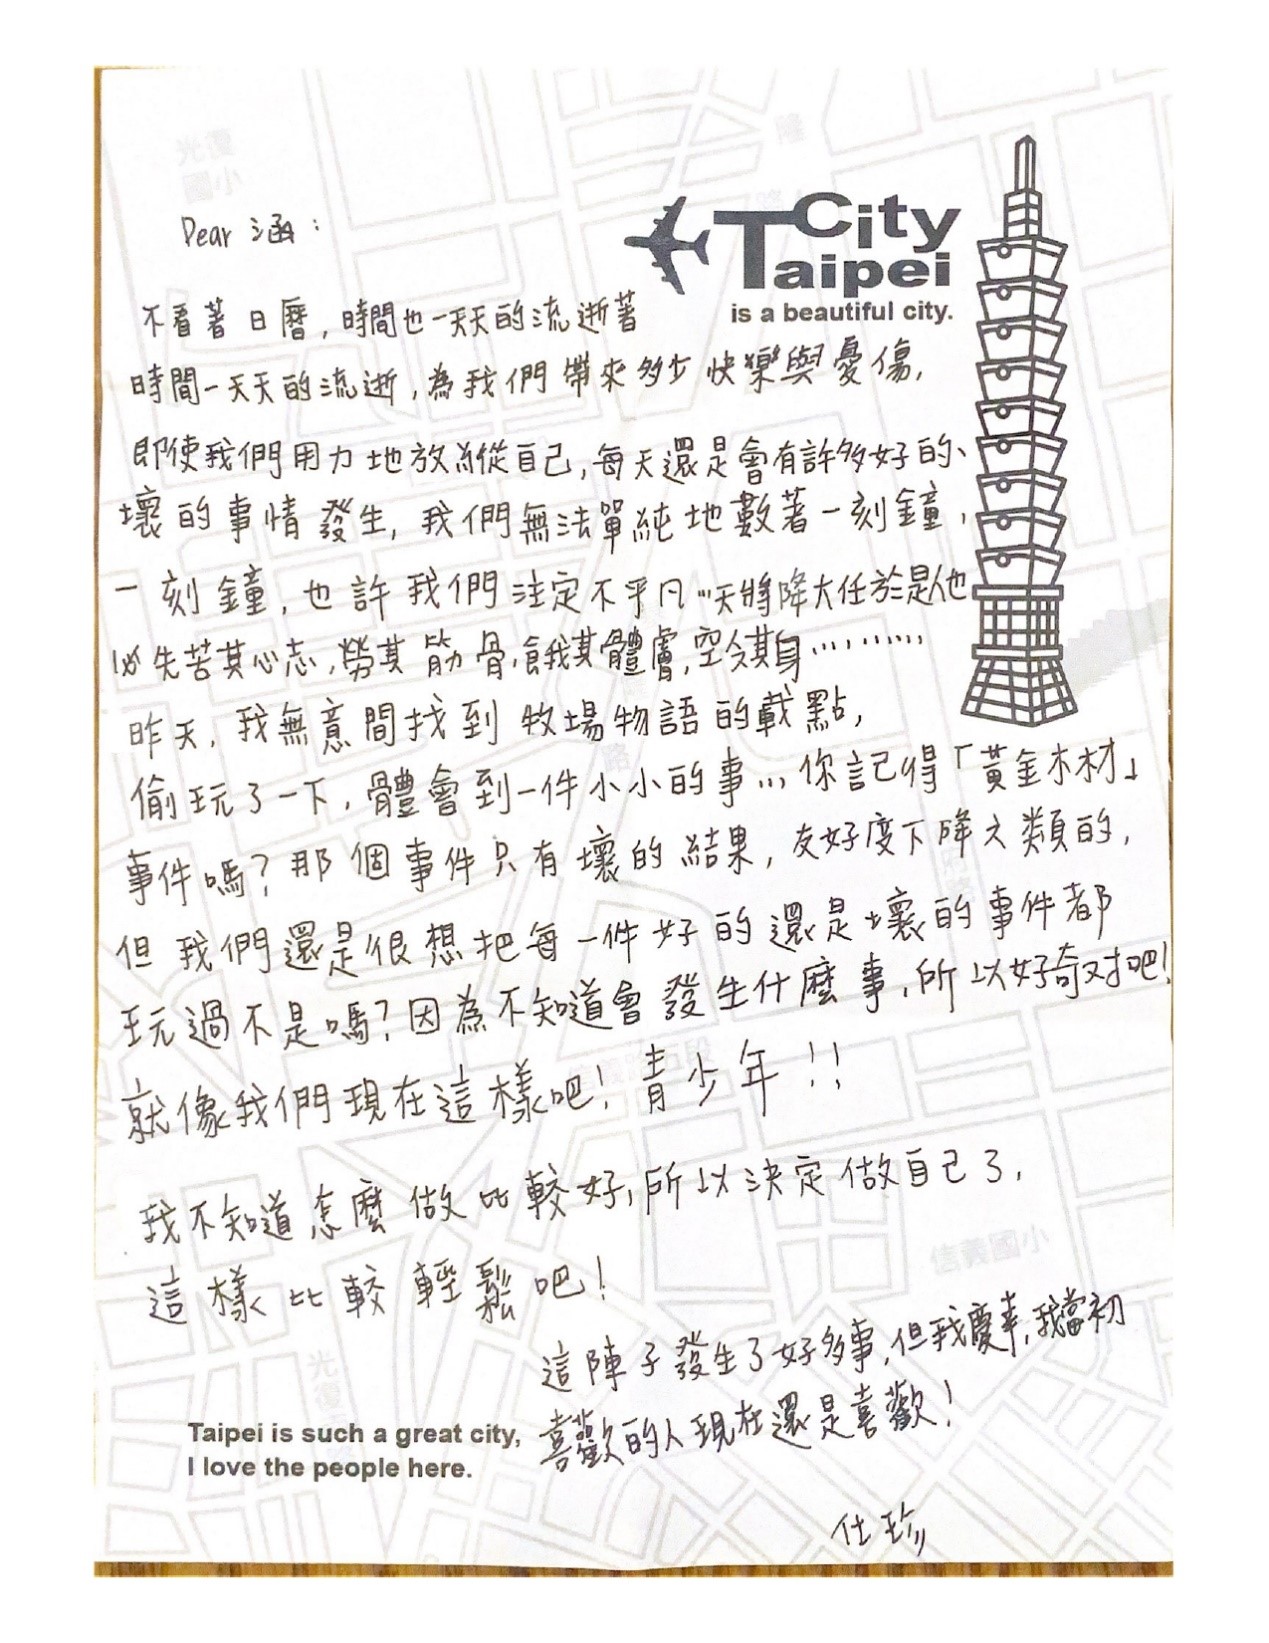 光復
國小
隆
Dear 涵：
City
Taipei
is a beautiful city.
不看著日曆，時間也一天天的流逝著
時間一天天的流逝，為我們帶來多少快樂與憂傷，
即使我們用力地放縱自己，每天還是會有許多好的、
壞的事情發生，我們無法單純地數著一刻鐘，
一刻鐘，也許我們注定不平凡…天將降大任於是人也
必先苦其心志，勞其筋骨，餓其體膚，空乏其身………
昨天，我無意間找到牧場物語的載點，
偷玩了一下，體會到一件小小的事…你記得「黃金木材」
事件嗎？那個事件只有壞的結果，友好度下降之類的，
但我們還是很想把每一件好的還是壞的事件都
玩過不是嗎？因為不知道會發生什麼事，所以好奇对吧！
信義路五段
就像我們現在這樣吧！青少年！！
我不知道怎麼做比較好，所以決定做自己了，
信義國小
這樣比較輕鬆吧！
這陣子發生了好多事，但我慶幸，我當初
喜歡的人現在還是喜歡！
光復
Taipei is such a great city,
I love the people here.
仕珍